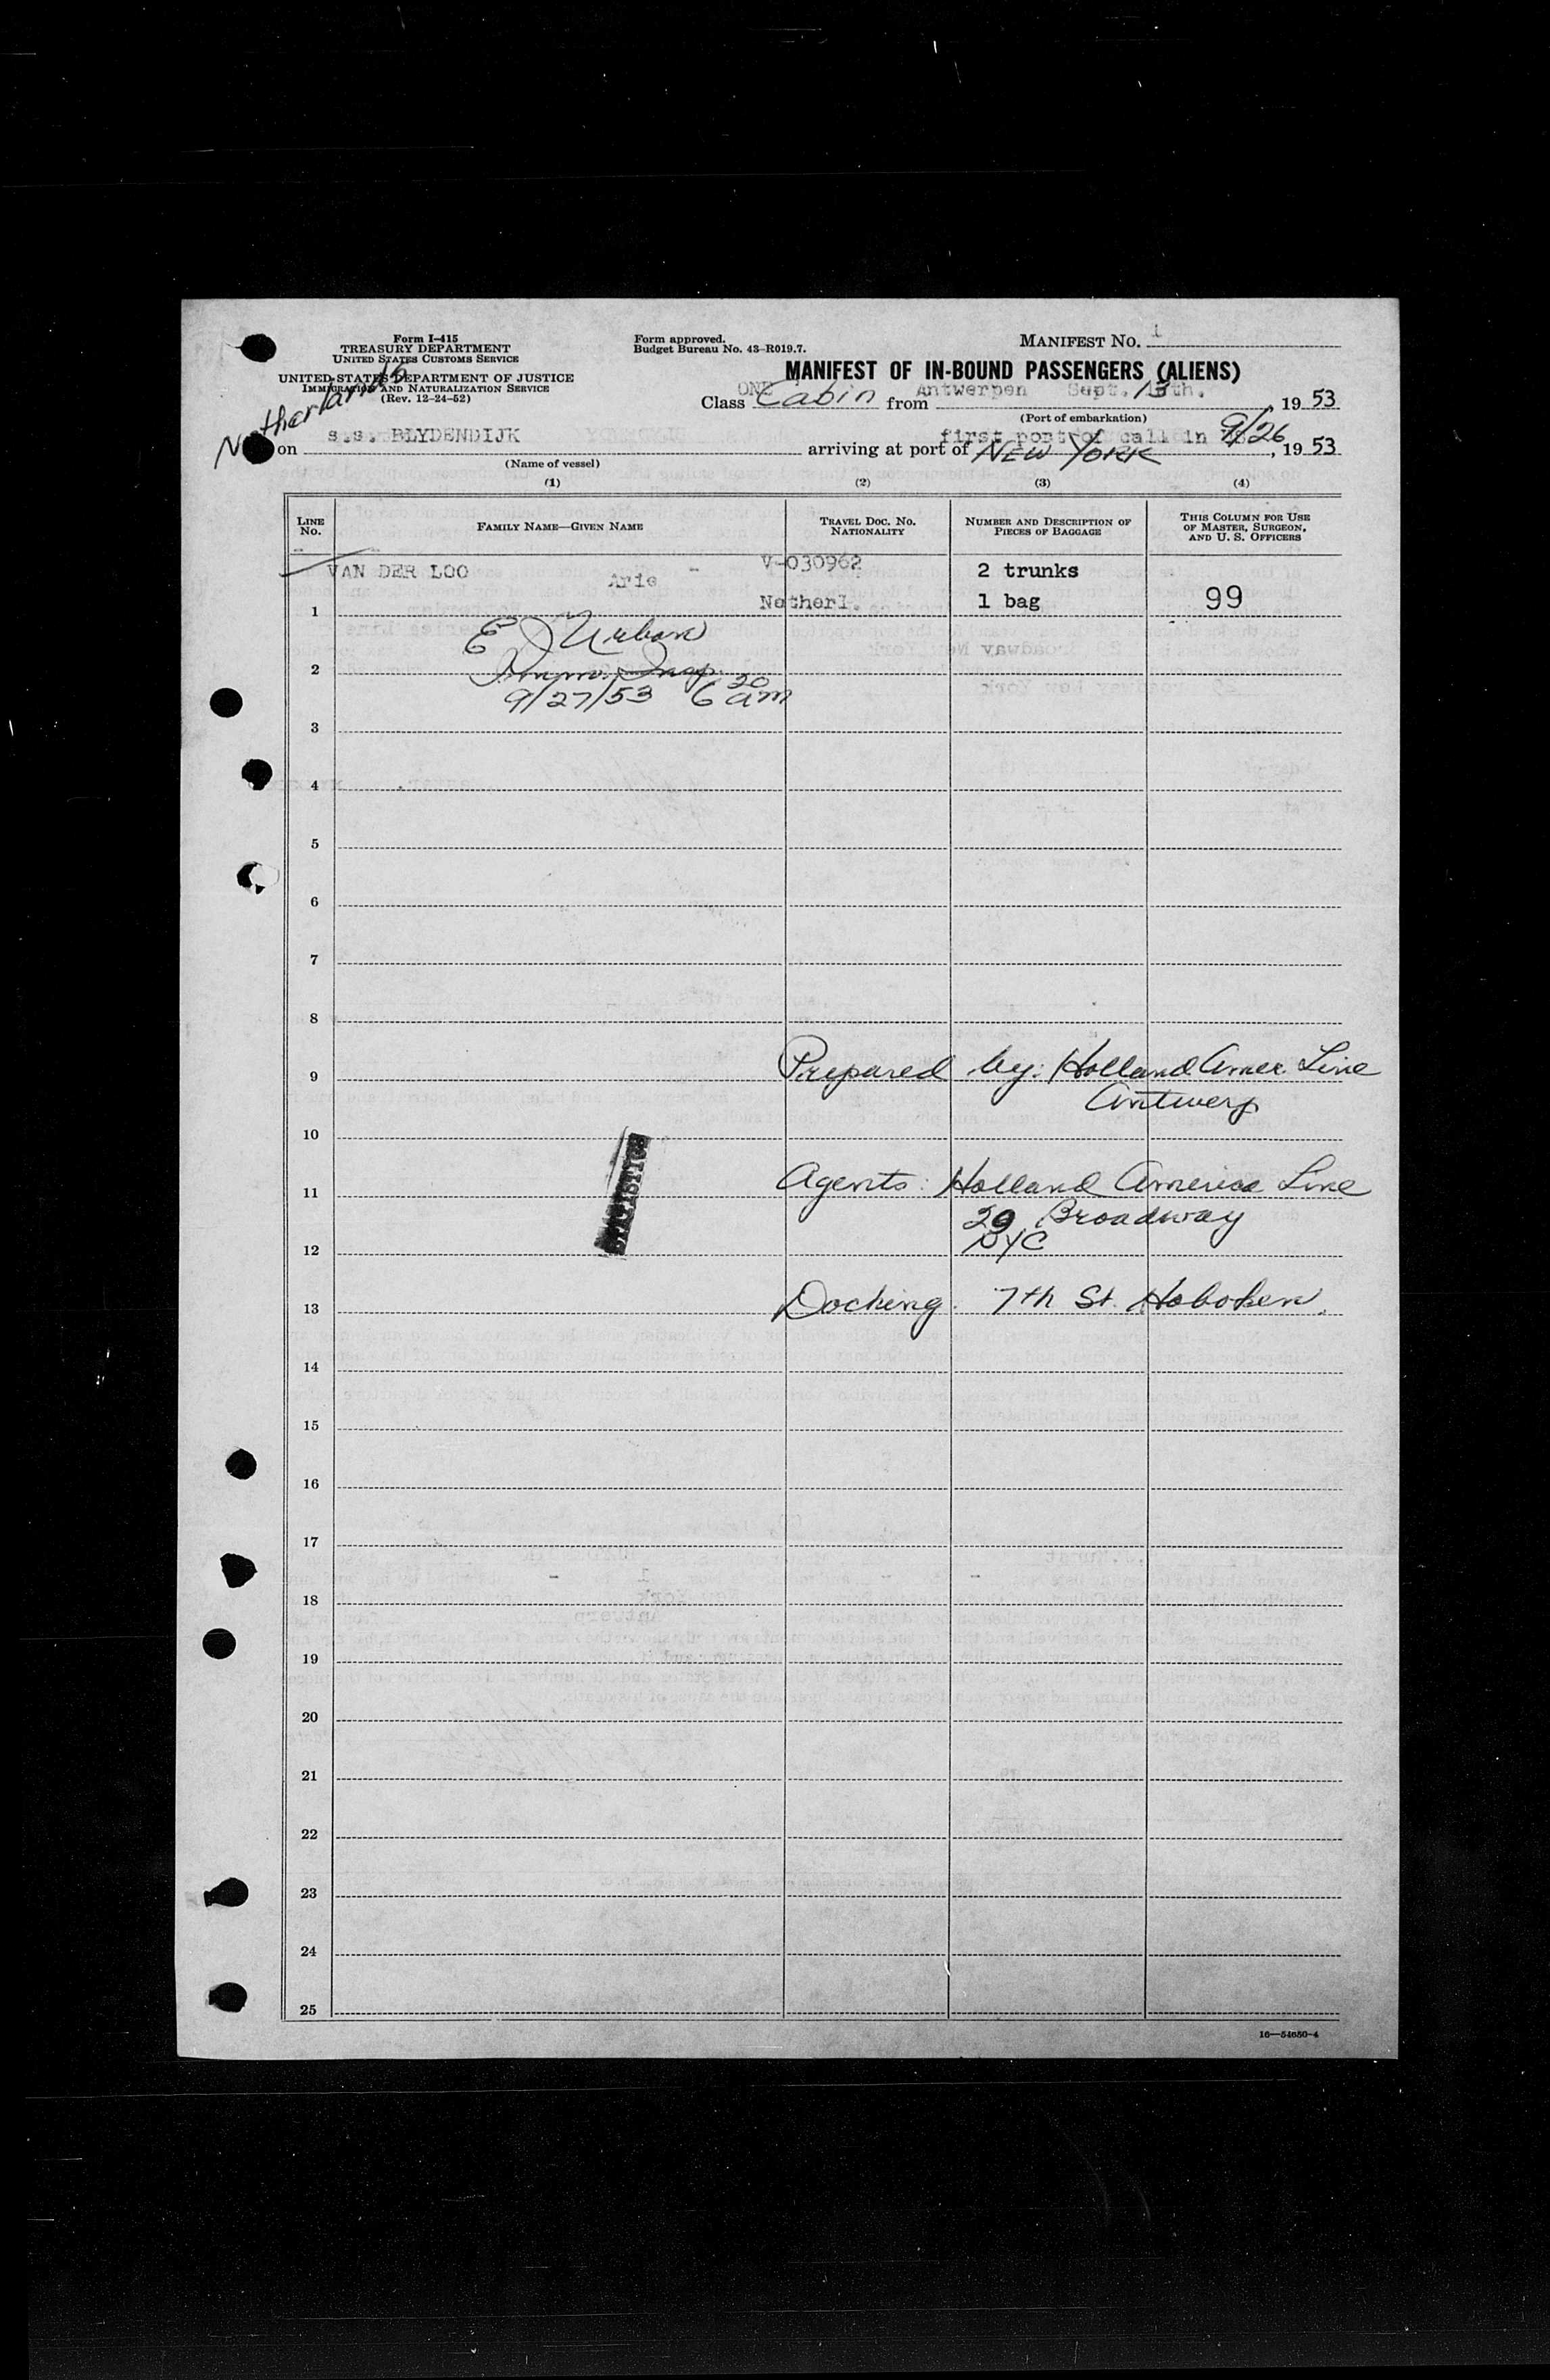 Form I-415
TREASURY DEPARTMENT
UNITED STATES CUSTOMS SERVICE
UNITED STATES DEPARTMENT OF JUSTICE
IMMIGRATION AND NATURALIZATION SERVICE
(Rev. 12-24-52)
Netherlands
Form approved.
Budget Bureau No. 43-R019.7.
MANIFEST NO. 1
MANIFEST OF IN-BOUND PASSENGERS (ALIENS)
Class ONE Cabin from Antwerpen Sept. 13th. , 19 53
(Port of embarkation)
on s.s. BLYDENDIJK arriving at port of first port of call in NEW YORK 9/26 , 19 53
(Name of vessel)
(1) (2) (3) (4)
LINE NO. FAMILY NAME—GIVEN NAME TRAVEL DOC. NO. NATIONALITY NUMBER AND DESCRIPTION OF PIECES OF BAGGAGE THIS COLUMN FOR USE OF MASTER, SURGEON, AND U. S. OFFICERS
VAN DER LOO Arie - V-030962 2 trunks
1 Netherl. 1 bag 99
E J Urban
2 Immn. Insp.
9/27/53 6 30 am
3
4
5
6
7
8
9 Prepared by: Holland Amer. Line
Antwerp
10
11 Agents: Holland America Line
29 Broadway
12 NYC
13 Docking 7th St. Hoboken.
14
15
16
17
18
19
20
21
22
23
24
25
16—54650-4